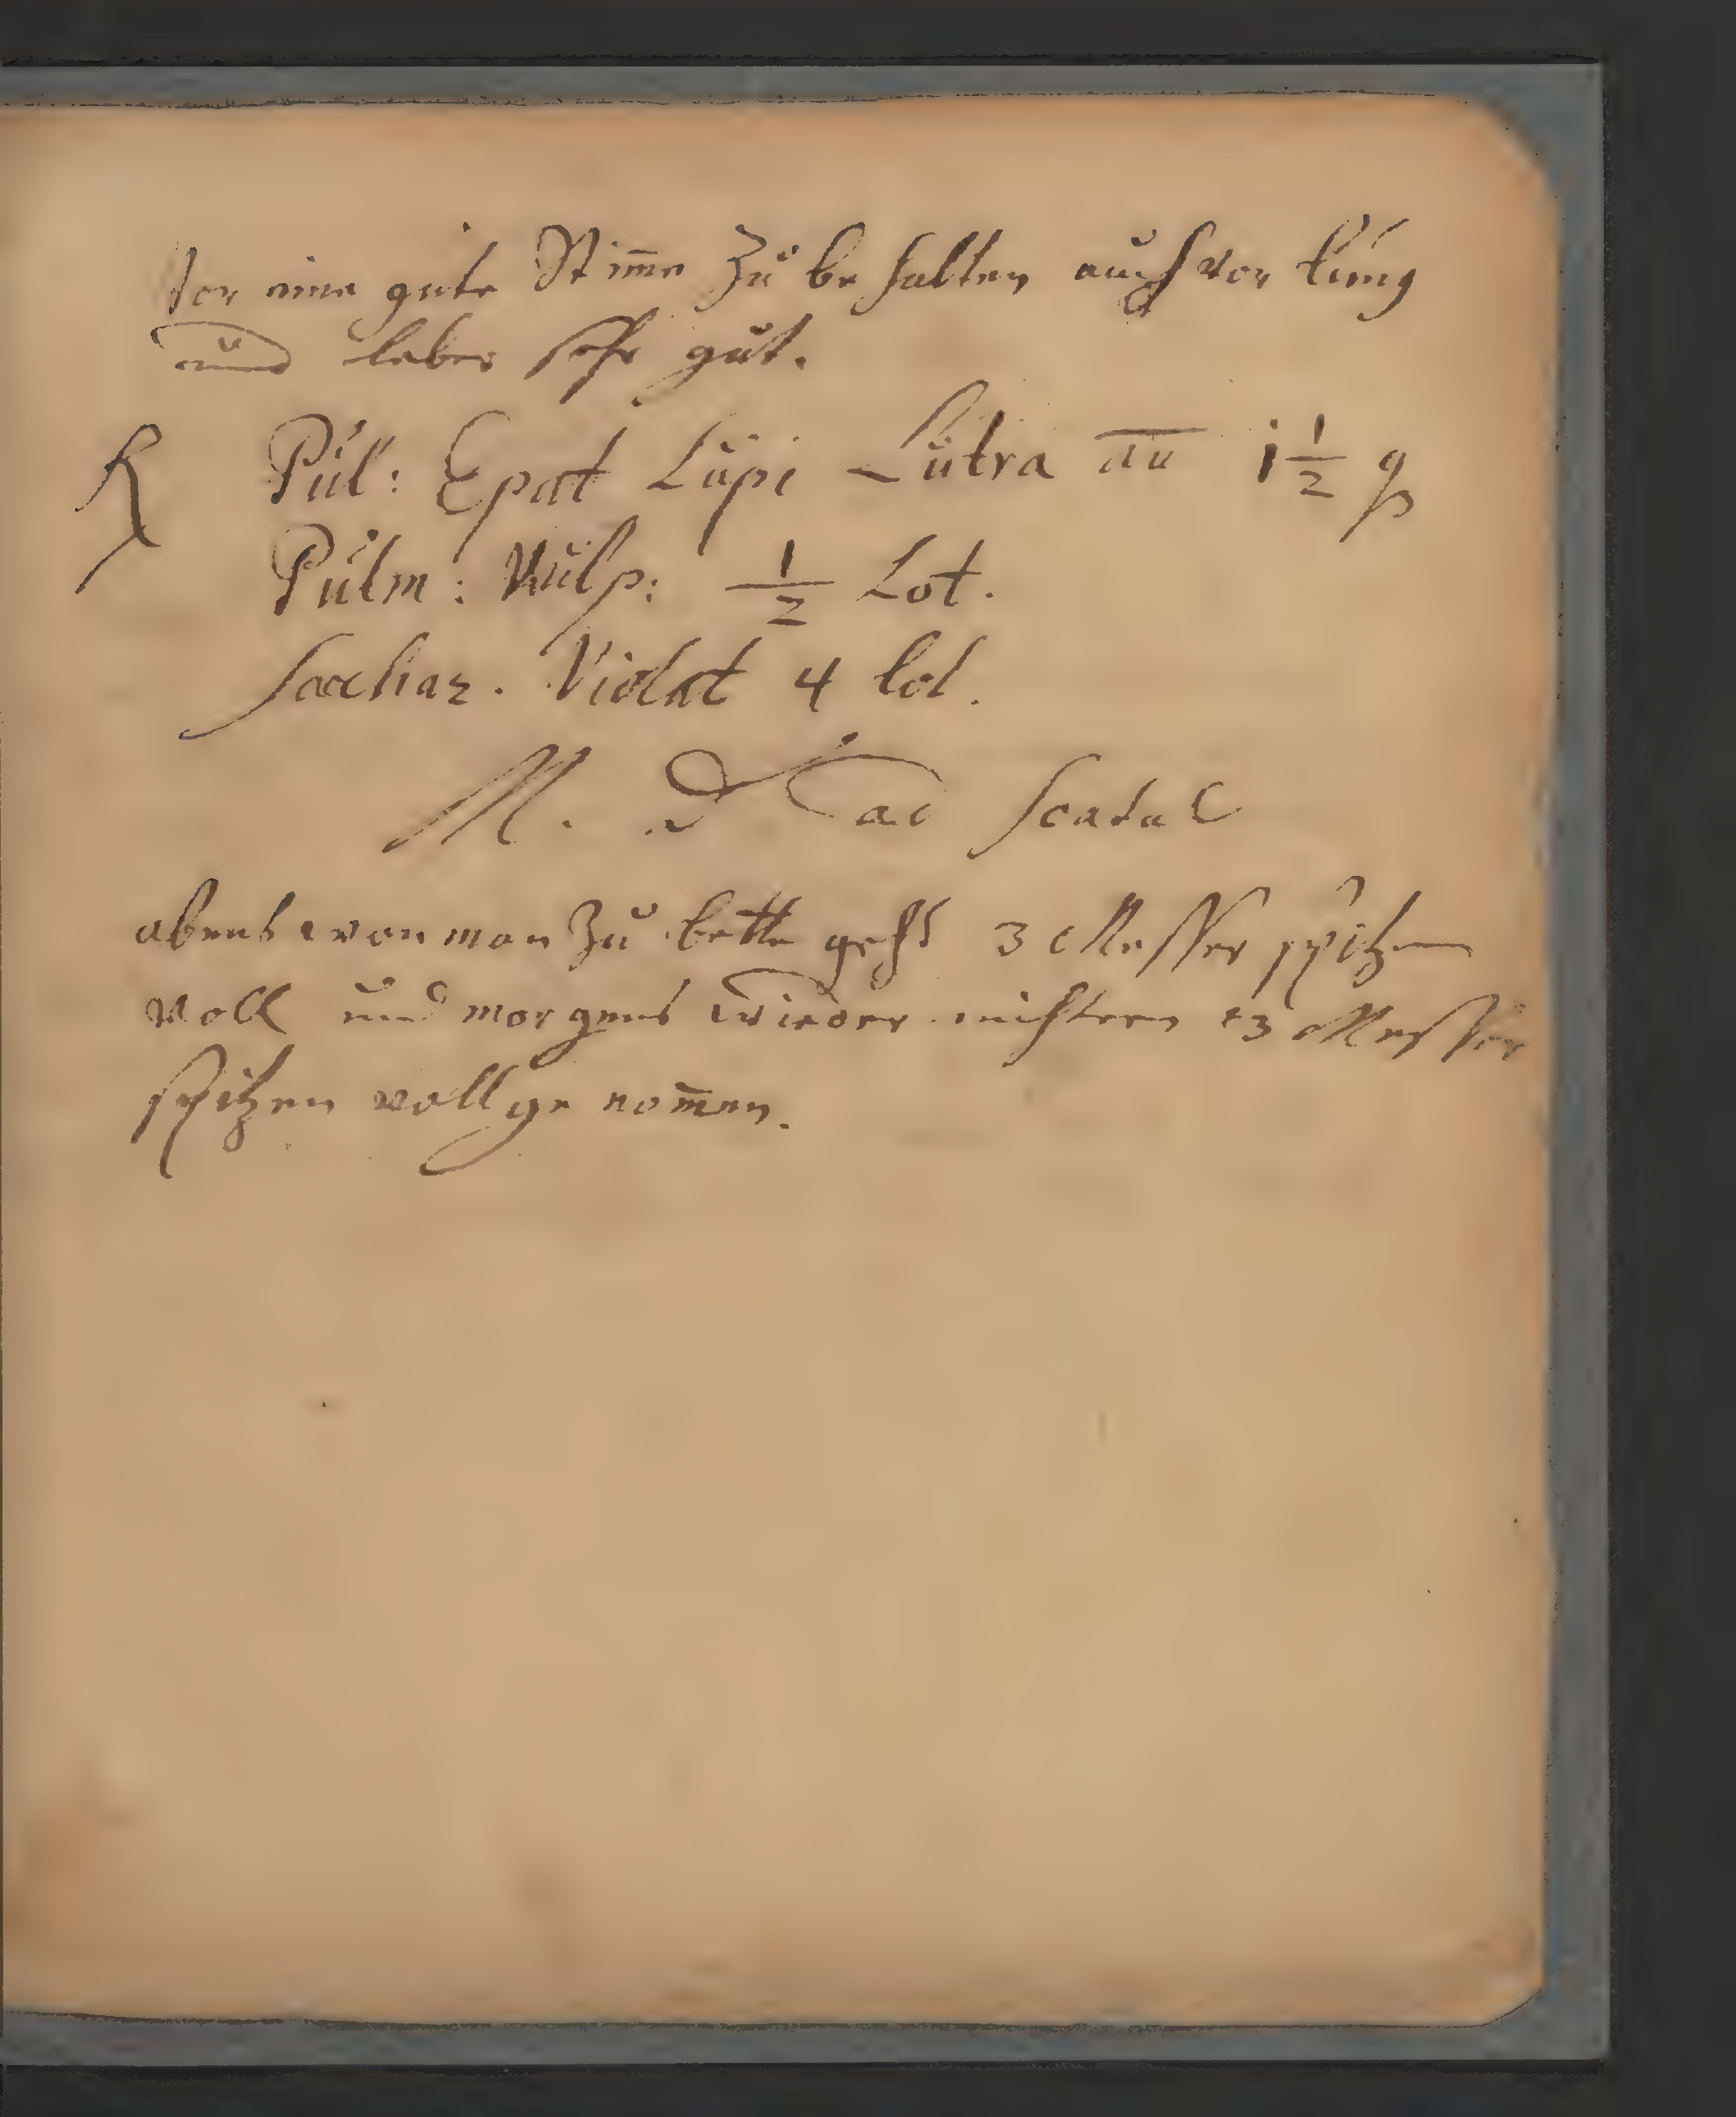 Vor eine gute Stim̄e Zu behalten auch vor lung
und leber sehr gut.
℞ Pul: Epat Lupi Lutra an̄ i 1/2 q
Pulm: Vulp: 1/2 Lot.
Sachar. Violat 4 lot.
M. D ad Scatul
abens wan man Zu bette geht 3 Messer spitzen
voll und morgens wieder nichtern 3 Messer
spitzen voll genom̄en.